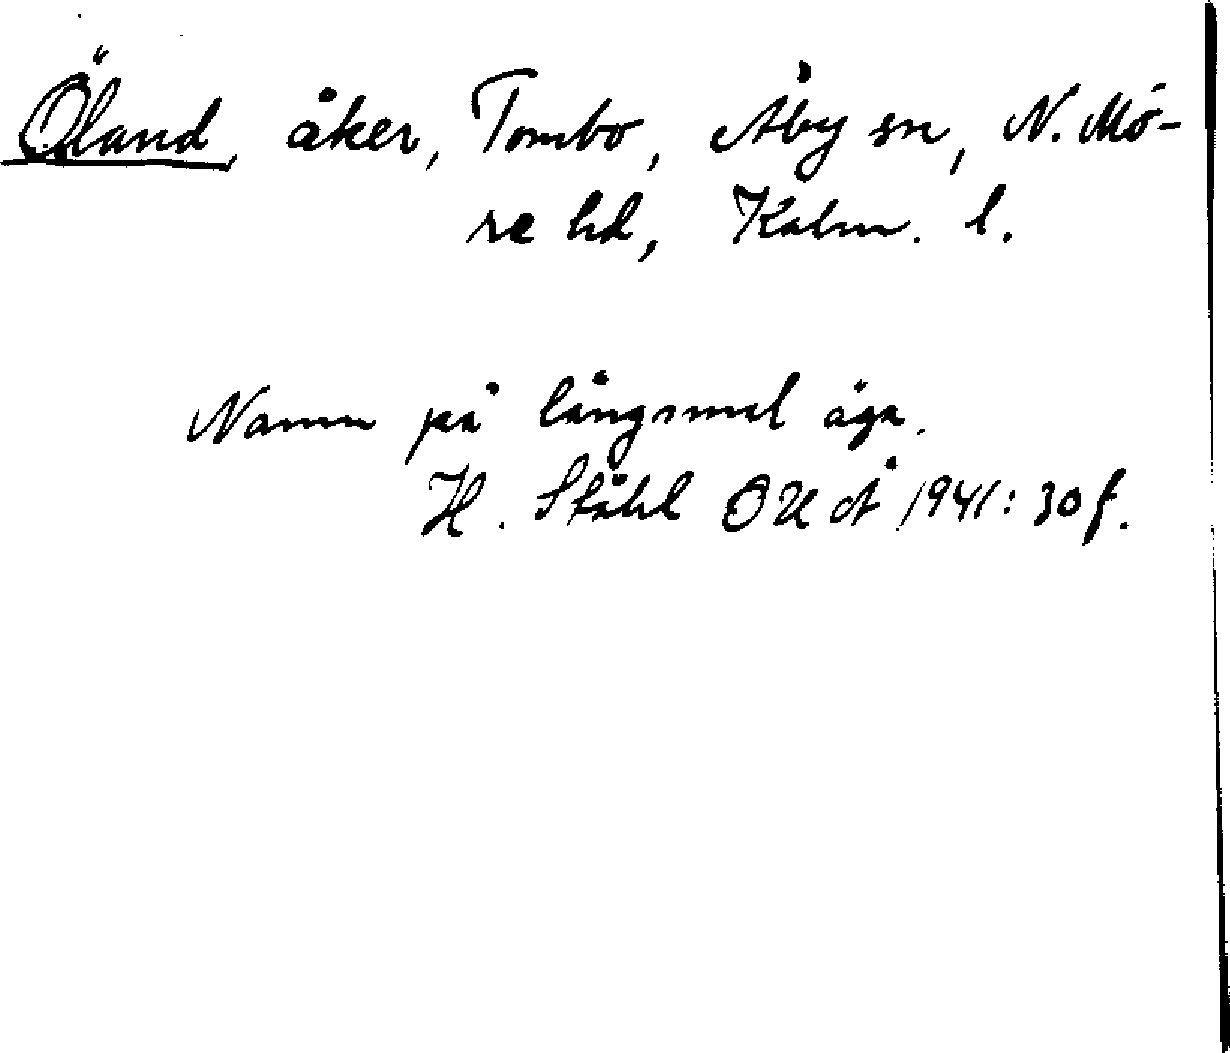 Öland, åker, Tombo, Åby sn, N. Mö-
re hd, Kalm. l.
Namn på långsmal äga.
H. Ståhl OUÅ 1941: 30 f.